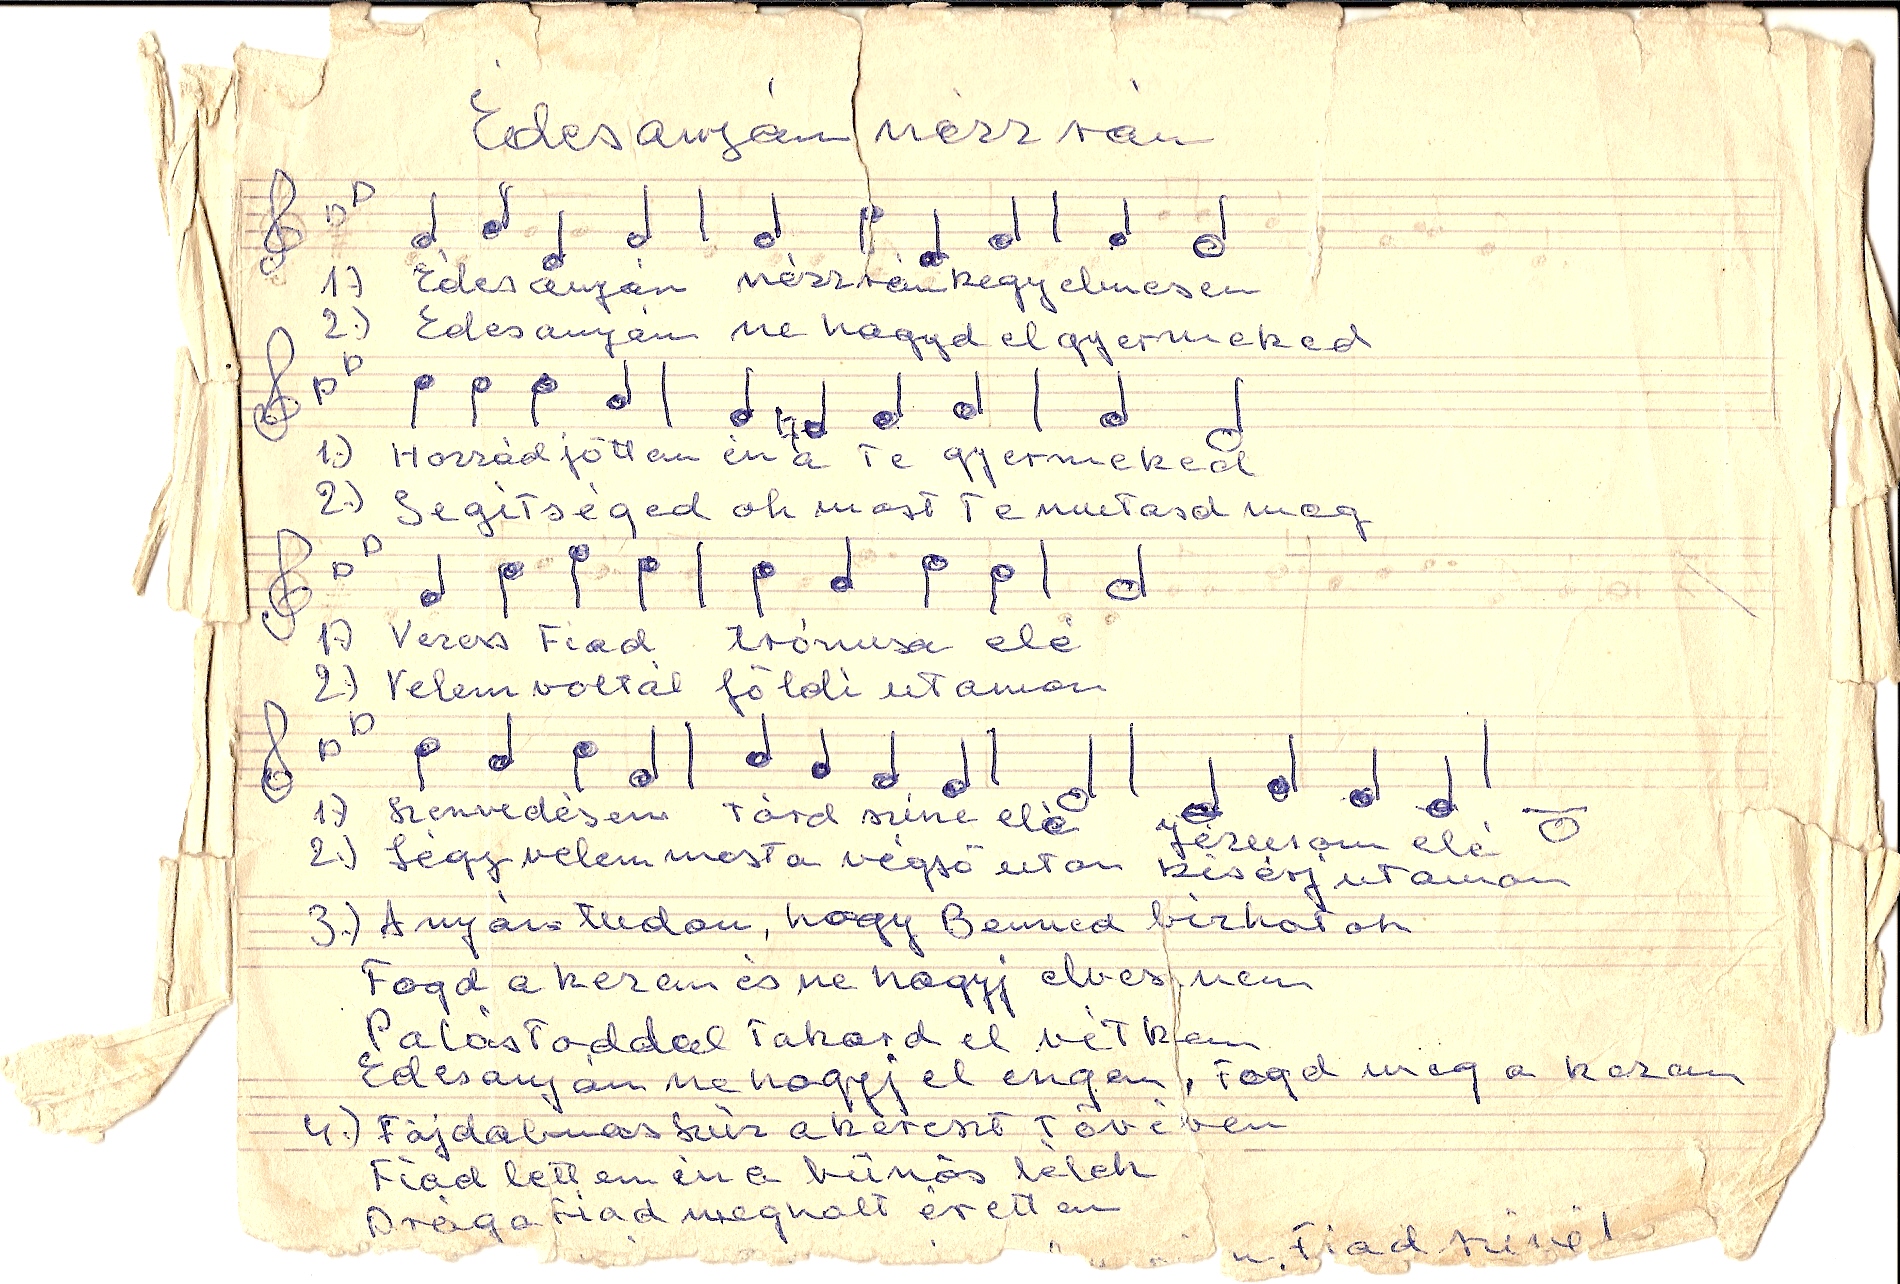 Édesanyám nézz rám
1.) Édesanyám nézz rám kegyelmesen
2.) Édesanyám ne hagyd el gyermeked
1.) Hozzád jöttem én a Te gyermeked
2.) Segítséged oh most Te mutasd meg
1.) Vezess Fiad trónusa elé
2.) Velem voltál földi utamon
1.) Szenvedésem tárd színe elé Jézusom elé
2.) Légy velem most a végső uton kísérj utamon
3.) Anyám tudom, hogy Benned bízhatok
Fogd a kezem és ne hagyj elvesznem
Palástoddal takard el vétkem
Édesanyám ne hagyj el engem, Fogd meg a kezem
4.) Fájdalmas Szűz a kereszt tövében
Fiad lettem én a bűnös lélek
Drága Fiad meghalt érettem
Fiad